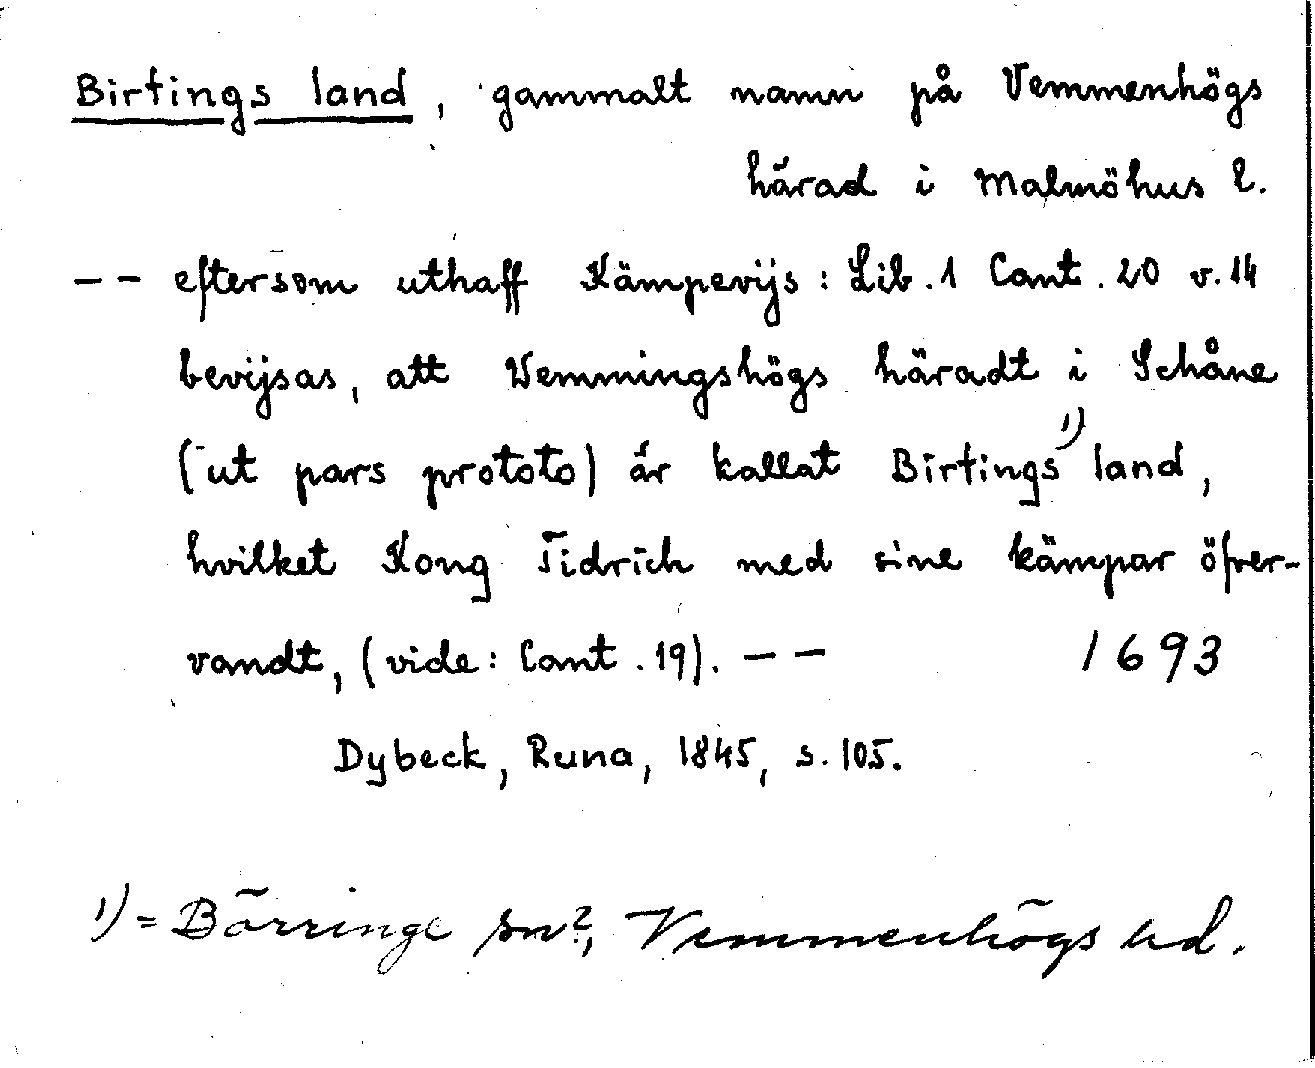 Birtings land, gammalt namn på Vemmenhögs
härad i Malmöhus l.
-- eftersom uthaff Kämpevijs: Lib. 1 Cant. 20 v. 14
bevijsas, att Wemmingshögs häradt i Schåne
(ut pars prototo) är kallat Birtings 1) land,
hvilket Kong Tidrich med sine kämpar öfver-
vandt, (vide: Cant. 19). -- 1693
Dybeck, Runa, 1845, s. 105.
1) = Börringe sn?, Vemmenhögs hd.